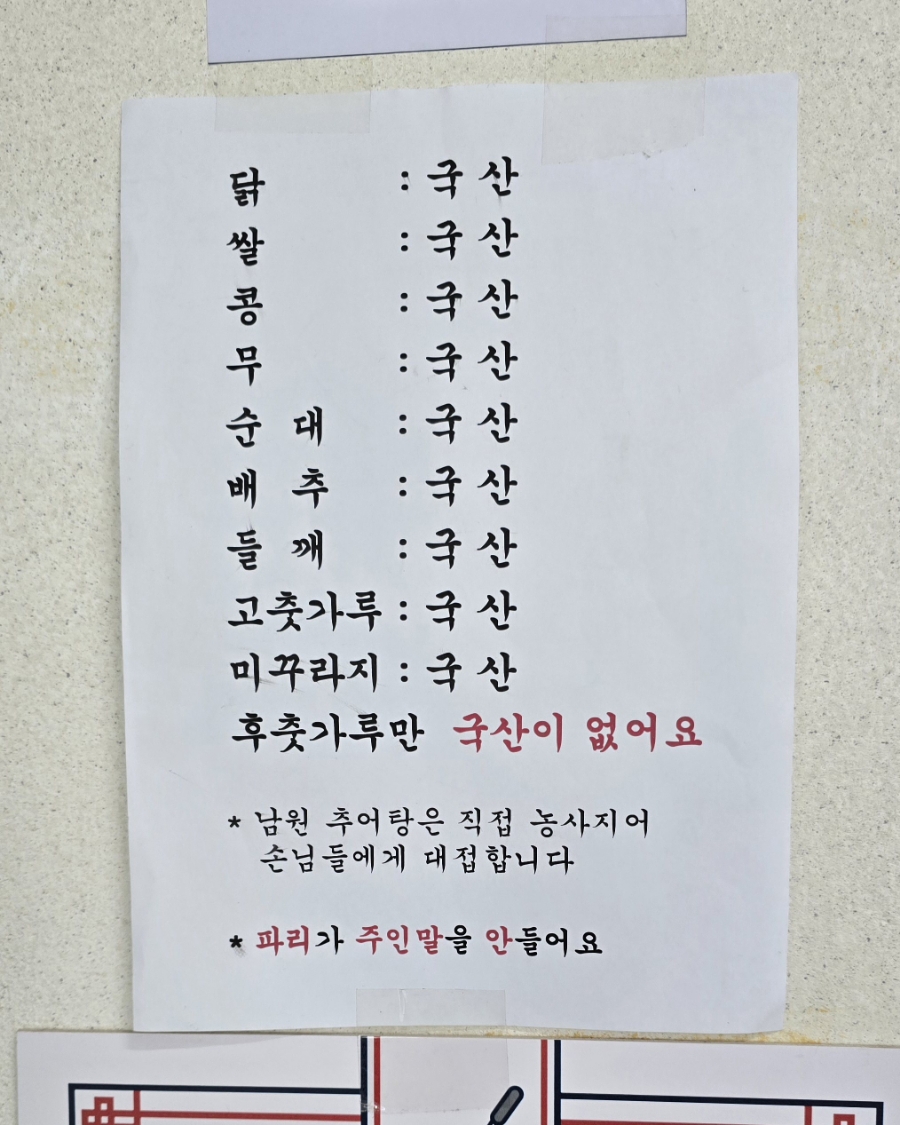 닭 : 국 산
쌀 : 국 산
콩 : 국 산
무 : 국 산
순 대 : 국 산
배 추 : 국 산
들 깨 : 국 산
고춧가루 : 국 산
미꾸라지 : 국 산
후춧가루만 국산이 없어요
* 남원 추어탕은 직접 농사지어
손님들에게 대접합니다
* 파리가 주인말을 안들어요